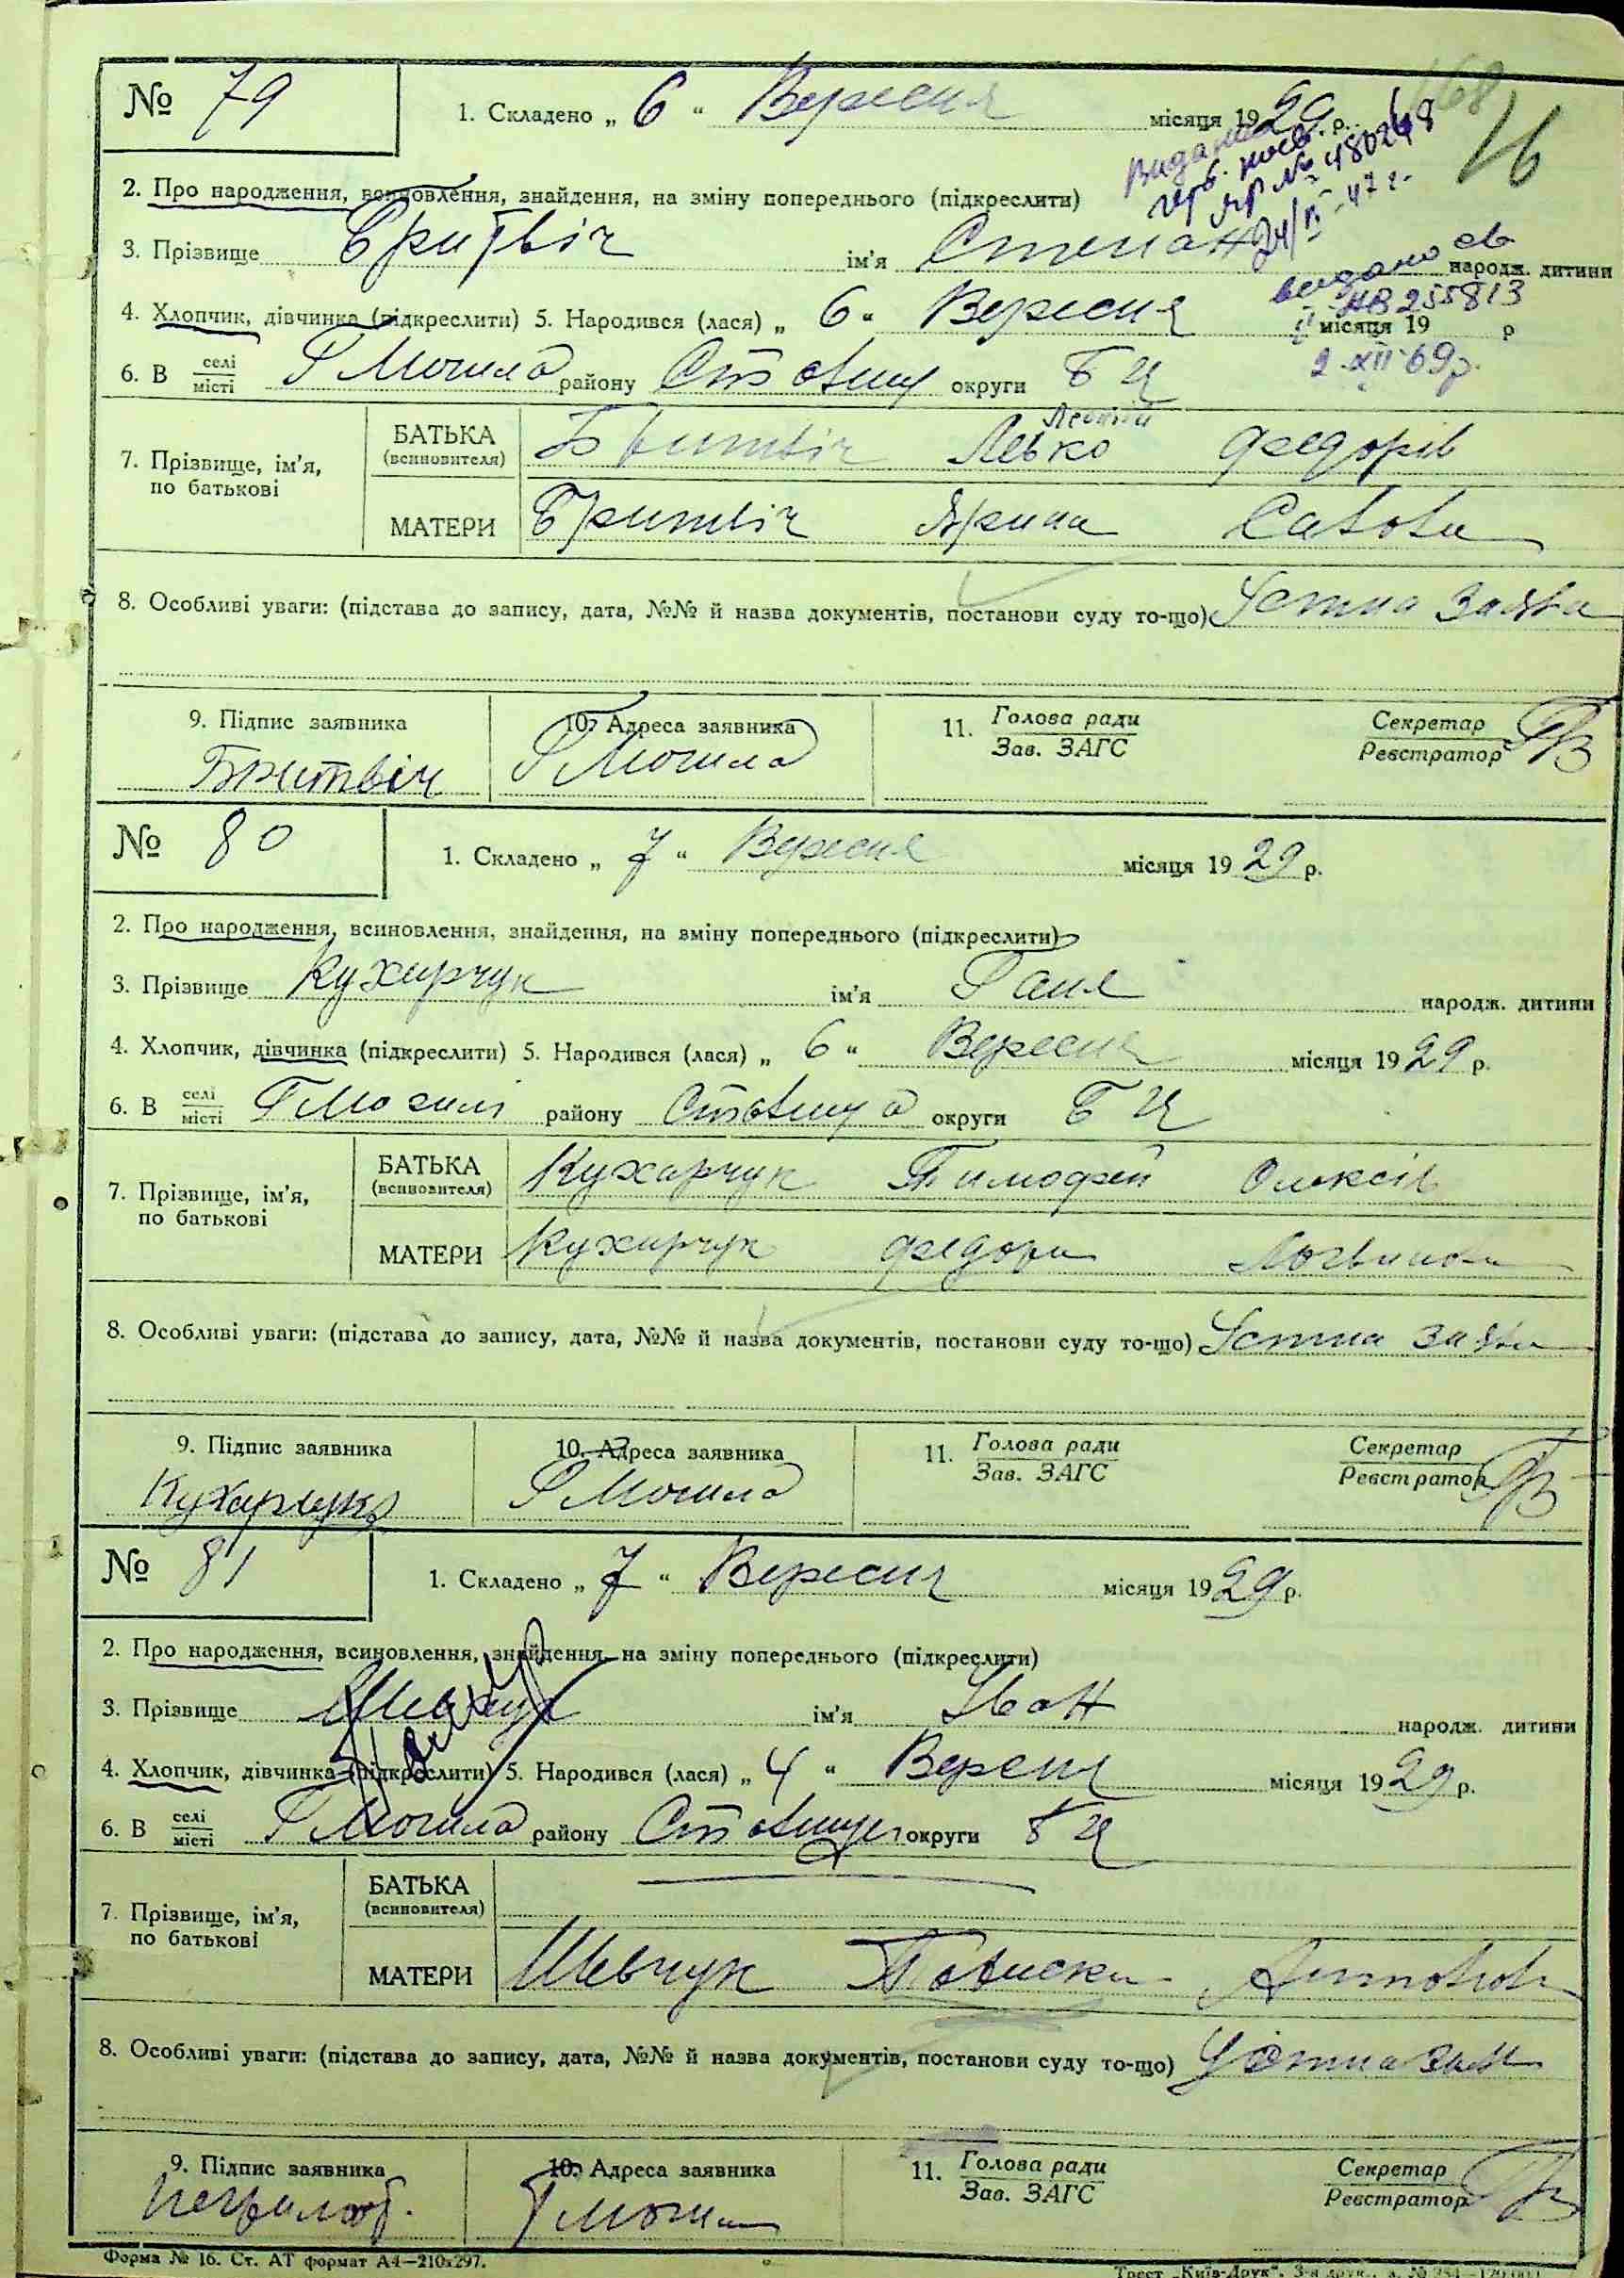 № 79
1. Складено „ 6 “ Вересня місяця 1929 р.
168
16
Видано
24/ІІІ-47 г.
2. Про народження, всиновлення, знайдення, на зміну попереднього (підкреслити)
3. Прізвище Бритвіч ім'я Степан народж. дитини
видано св
255813
2.XII 69р.
4. Хлопчик, дівчинка (підкреслити) 5. Народився (лася) „ 6 “ Вересня місяця 19 р
6. В селі/місті Г Могила району Ставищ округи БЦ
7. Прізвище, ім'я, по батькові
БАТЬКА (всиновителя) Бритвіч Левко Федорів
МАТЕРИ Бритвіч Ярина Савова
8. Особливі уваги: (підстава до запису, дата, №№ й назва документів, постанови суду то-що) Устна заява
9. Підпис заявника 10. Адреса заявника 11. Голова ради/Зав. ЗАГС Секретар/Реєстратор
Бритвіч Г Могила
№ 80
1. Складено „ 7 “ Вересня місяця 1929 р.
2. Про народження, всиновлення, знайдення, на зміну попереднього (підкреслити)
3. Прізвище Кухарчук ім'я Ганя народж. дитини
4. Хлопчик, дівчинка (підкреслити) 5. Народився (лася) „ 6 “ Вересня місяця 1929 р.
6. В селі/місті Г Могилі району Ставища округи БЦ
7. Прізвище, ім'я, по батькові
БАТЬКА (всиновителя) Кухарчук Тимофей Олексів
МАТЕРИ Кухарчук Федора Логвинова
8. Особливі уваги: (підстава до запису, дата, №№ й назва документів, постанови суду то-що) Устна заява
9. Підпис заявника 10. Адреса заявника 11. Голова ради/Зав. ЗАГС Секретар/Реєстратор
Кухарчук Г Могила
№ 81
1. Складено „ 7 “ Вересня місяця 1929 р.
2. Про народження, всиновлення, знайдення, на зміну попереднього (підкреслити)
3. Прізвище Шевчук ім'я Іван народж. дитини
4. Хлопчик, дівчинка (підкреслити) 5. Народився (лася) „ 4 “ Вересня місяця 1929 р.
6. В селі/місті Г Могила району Ставище округи БЦ
7. Прізвище, ім'я, по батькові
БАТЬКА (всиновителя)
МАТЕРИ Шевчук Параска Антонова
8. Особливі уваги: (підстава до запису, дата, №№ й назва документів, постанови суду то-що) Устна заява
9. Підпис заявника 10. Адреса заявника 11. Голова ради/Зав. ЗАГС Секретар/Реєстратор
Г Могила
Форма № 16. Ст. АТ формат А4—210x297.
Трест „Київ-Друк“.